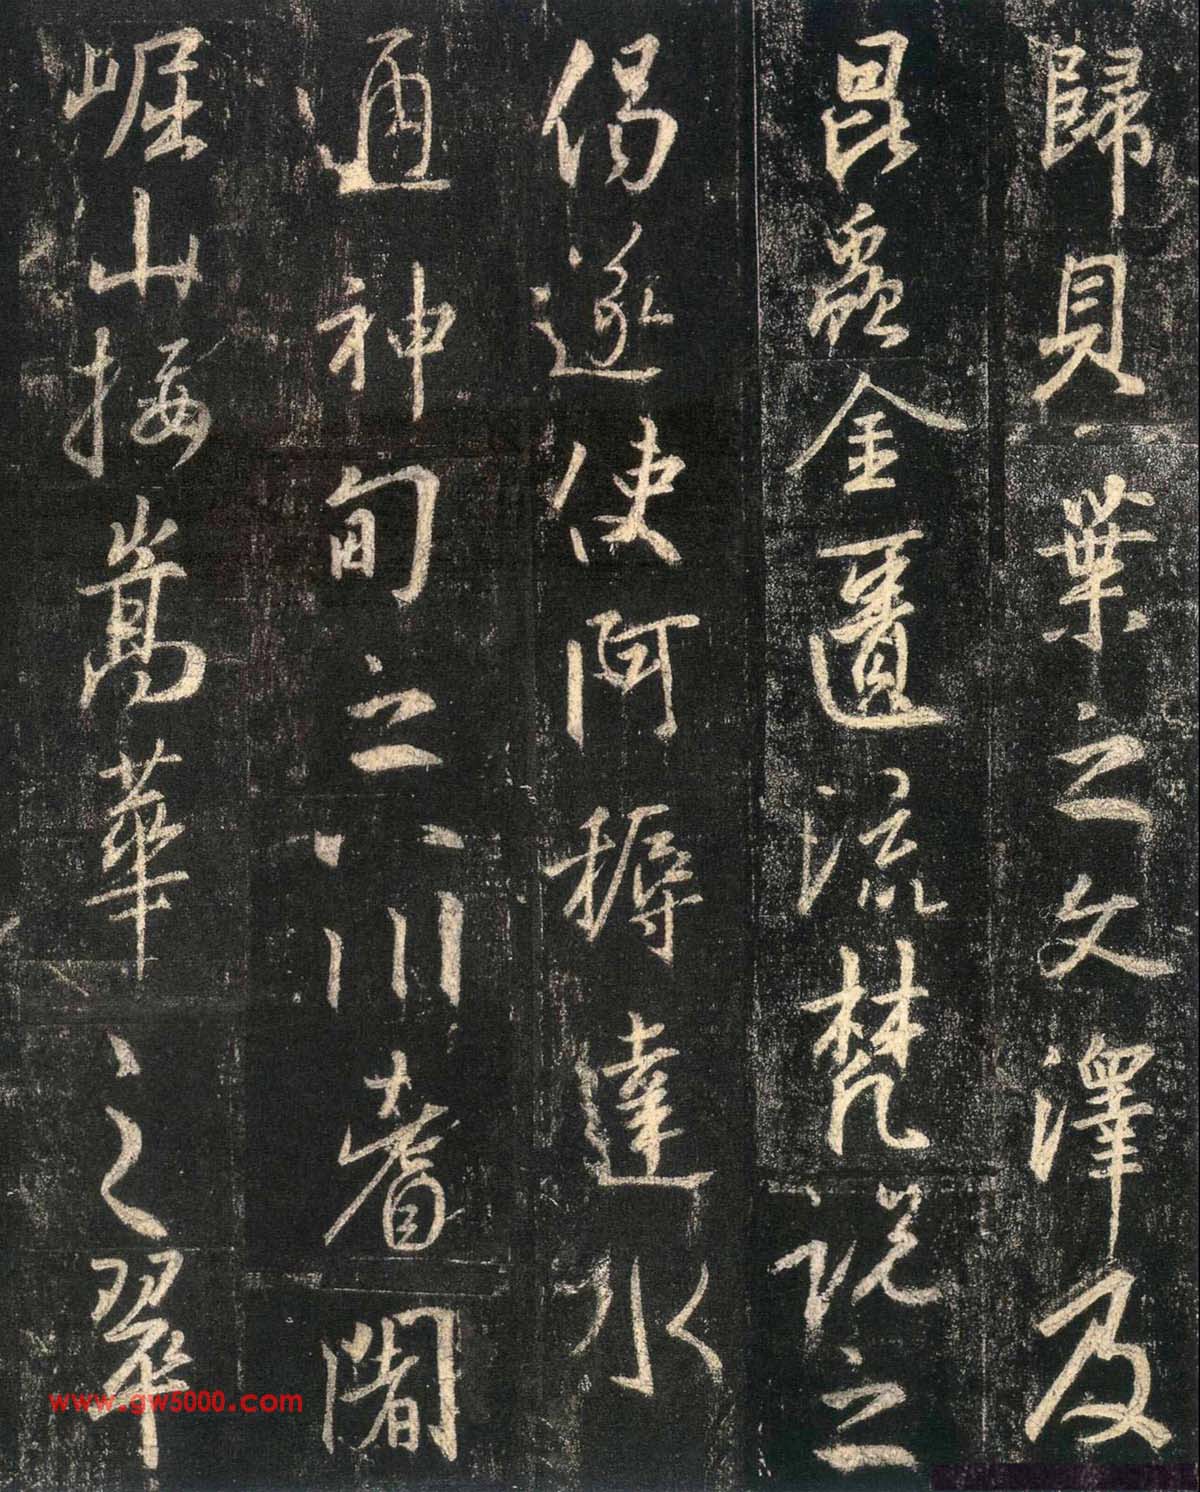 歸貝葉之文澤及
昆蟲金匱流梵説之
偈遂使阿耨達水
通神甸之八川耆闍
崛山接嵩華之翠
www.gw5000.com